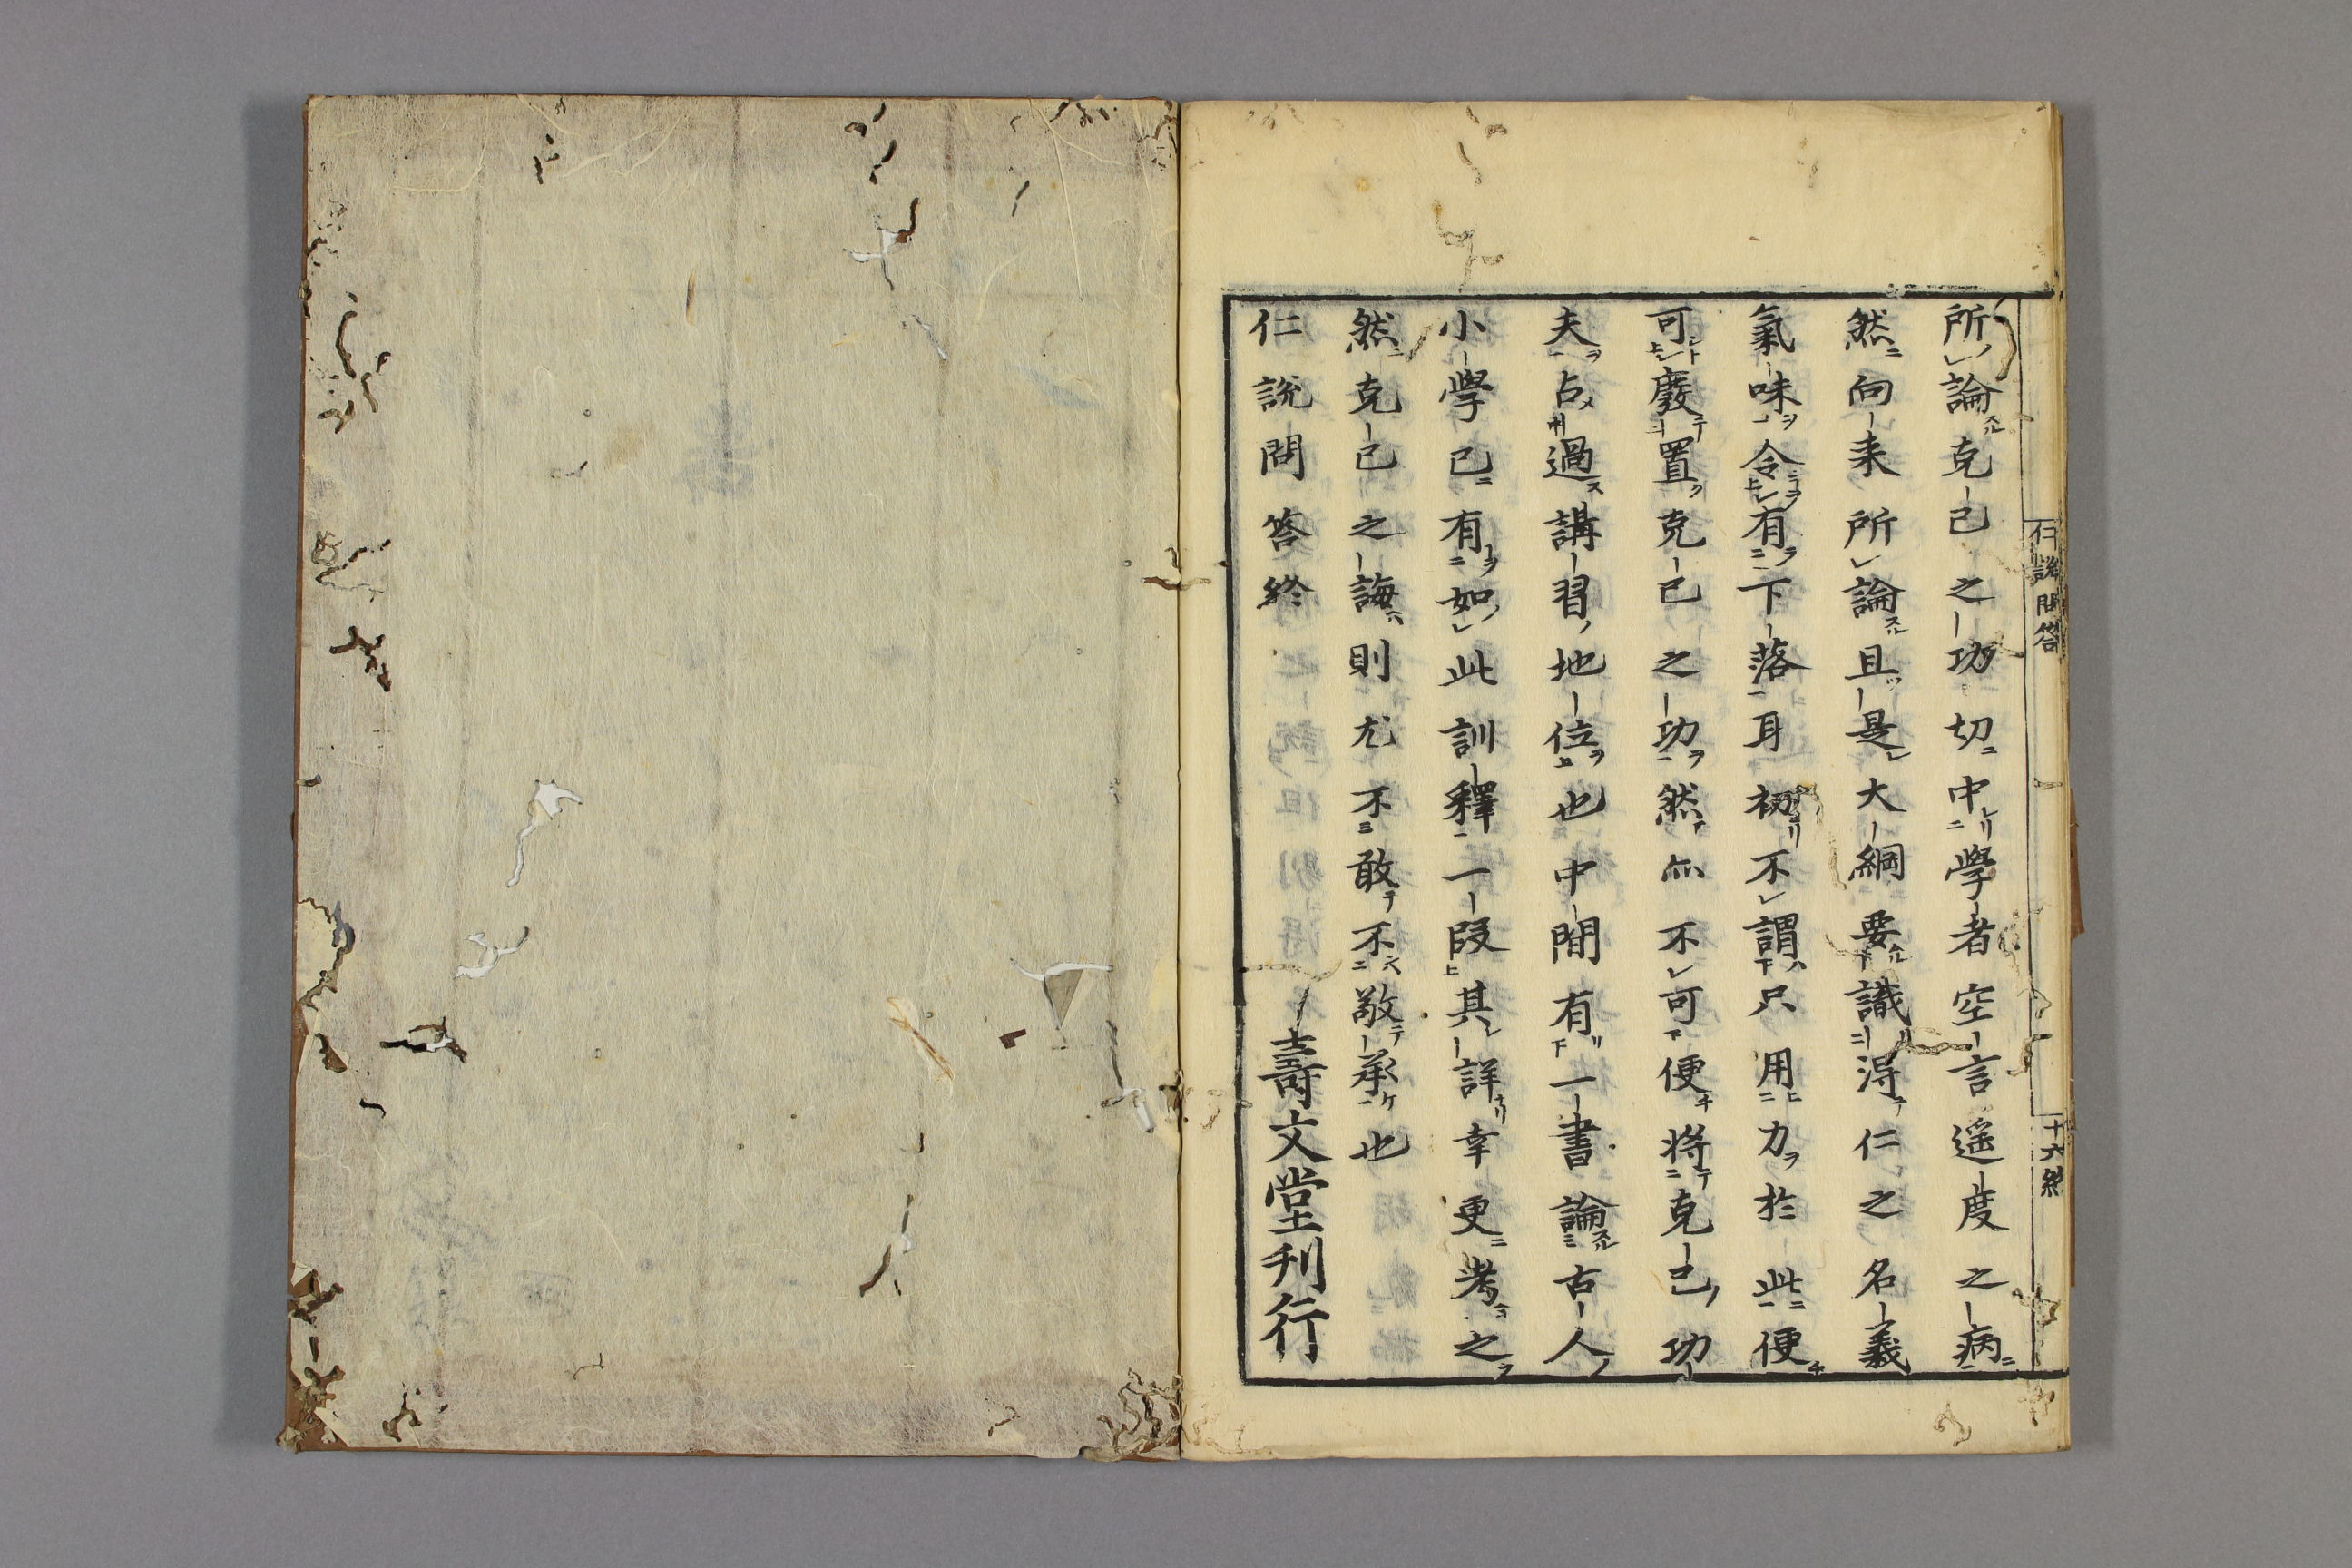 所論克己之功切中學者空言遥度之病
然向来所論且是大綱要識得仁之名義
氣味令有下落耳初不謂只用力於此便
可廢置克己之功然亦不可便將克己功
夫占過講習地位也中間有一書論古人
小學已有如此訓釋一段其詳幸更考之
然克己之誨則尤不敢不敬承也
仁說問答終
壽文堂刋行
仁說問答
十六終